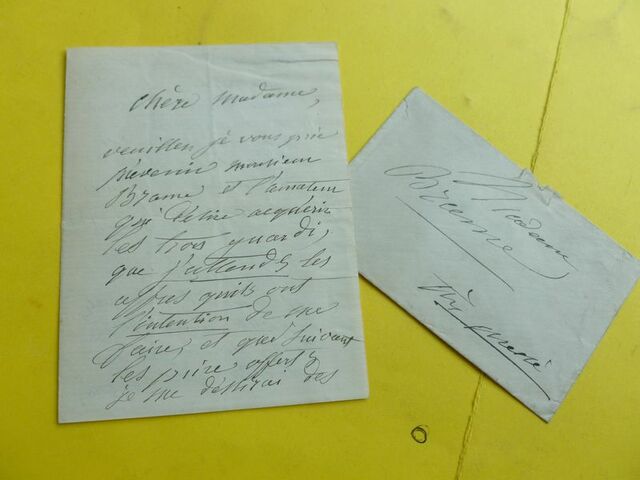 chère madame,
veuillez je vous prie
prévenir monsieur
Brame et l'amateur
qui désire acquérir
les trois guardi,
que j'attends les
offres quils ont
l'intention de me
faire, et que suivant
les prix offerts
je me désistrai des
Madame
Brienne
très pressé